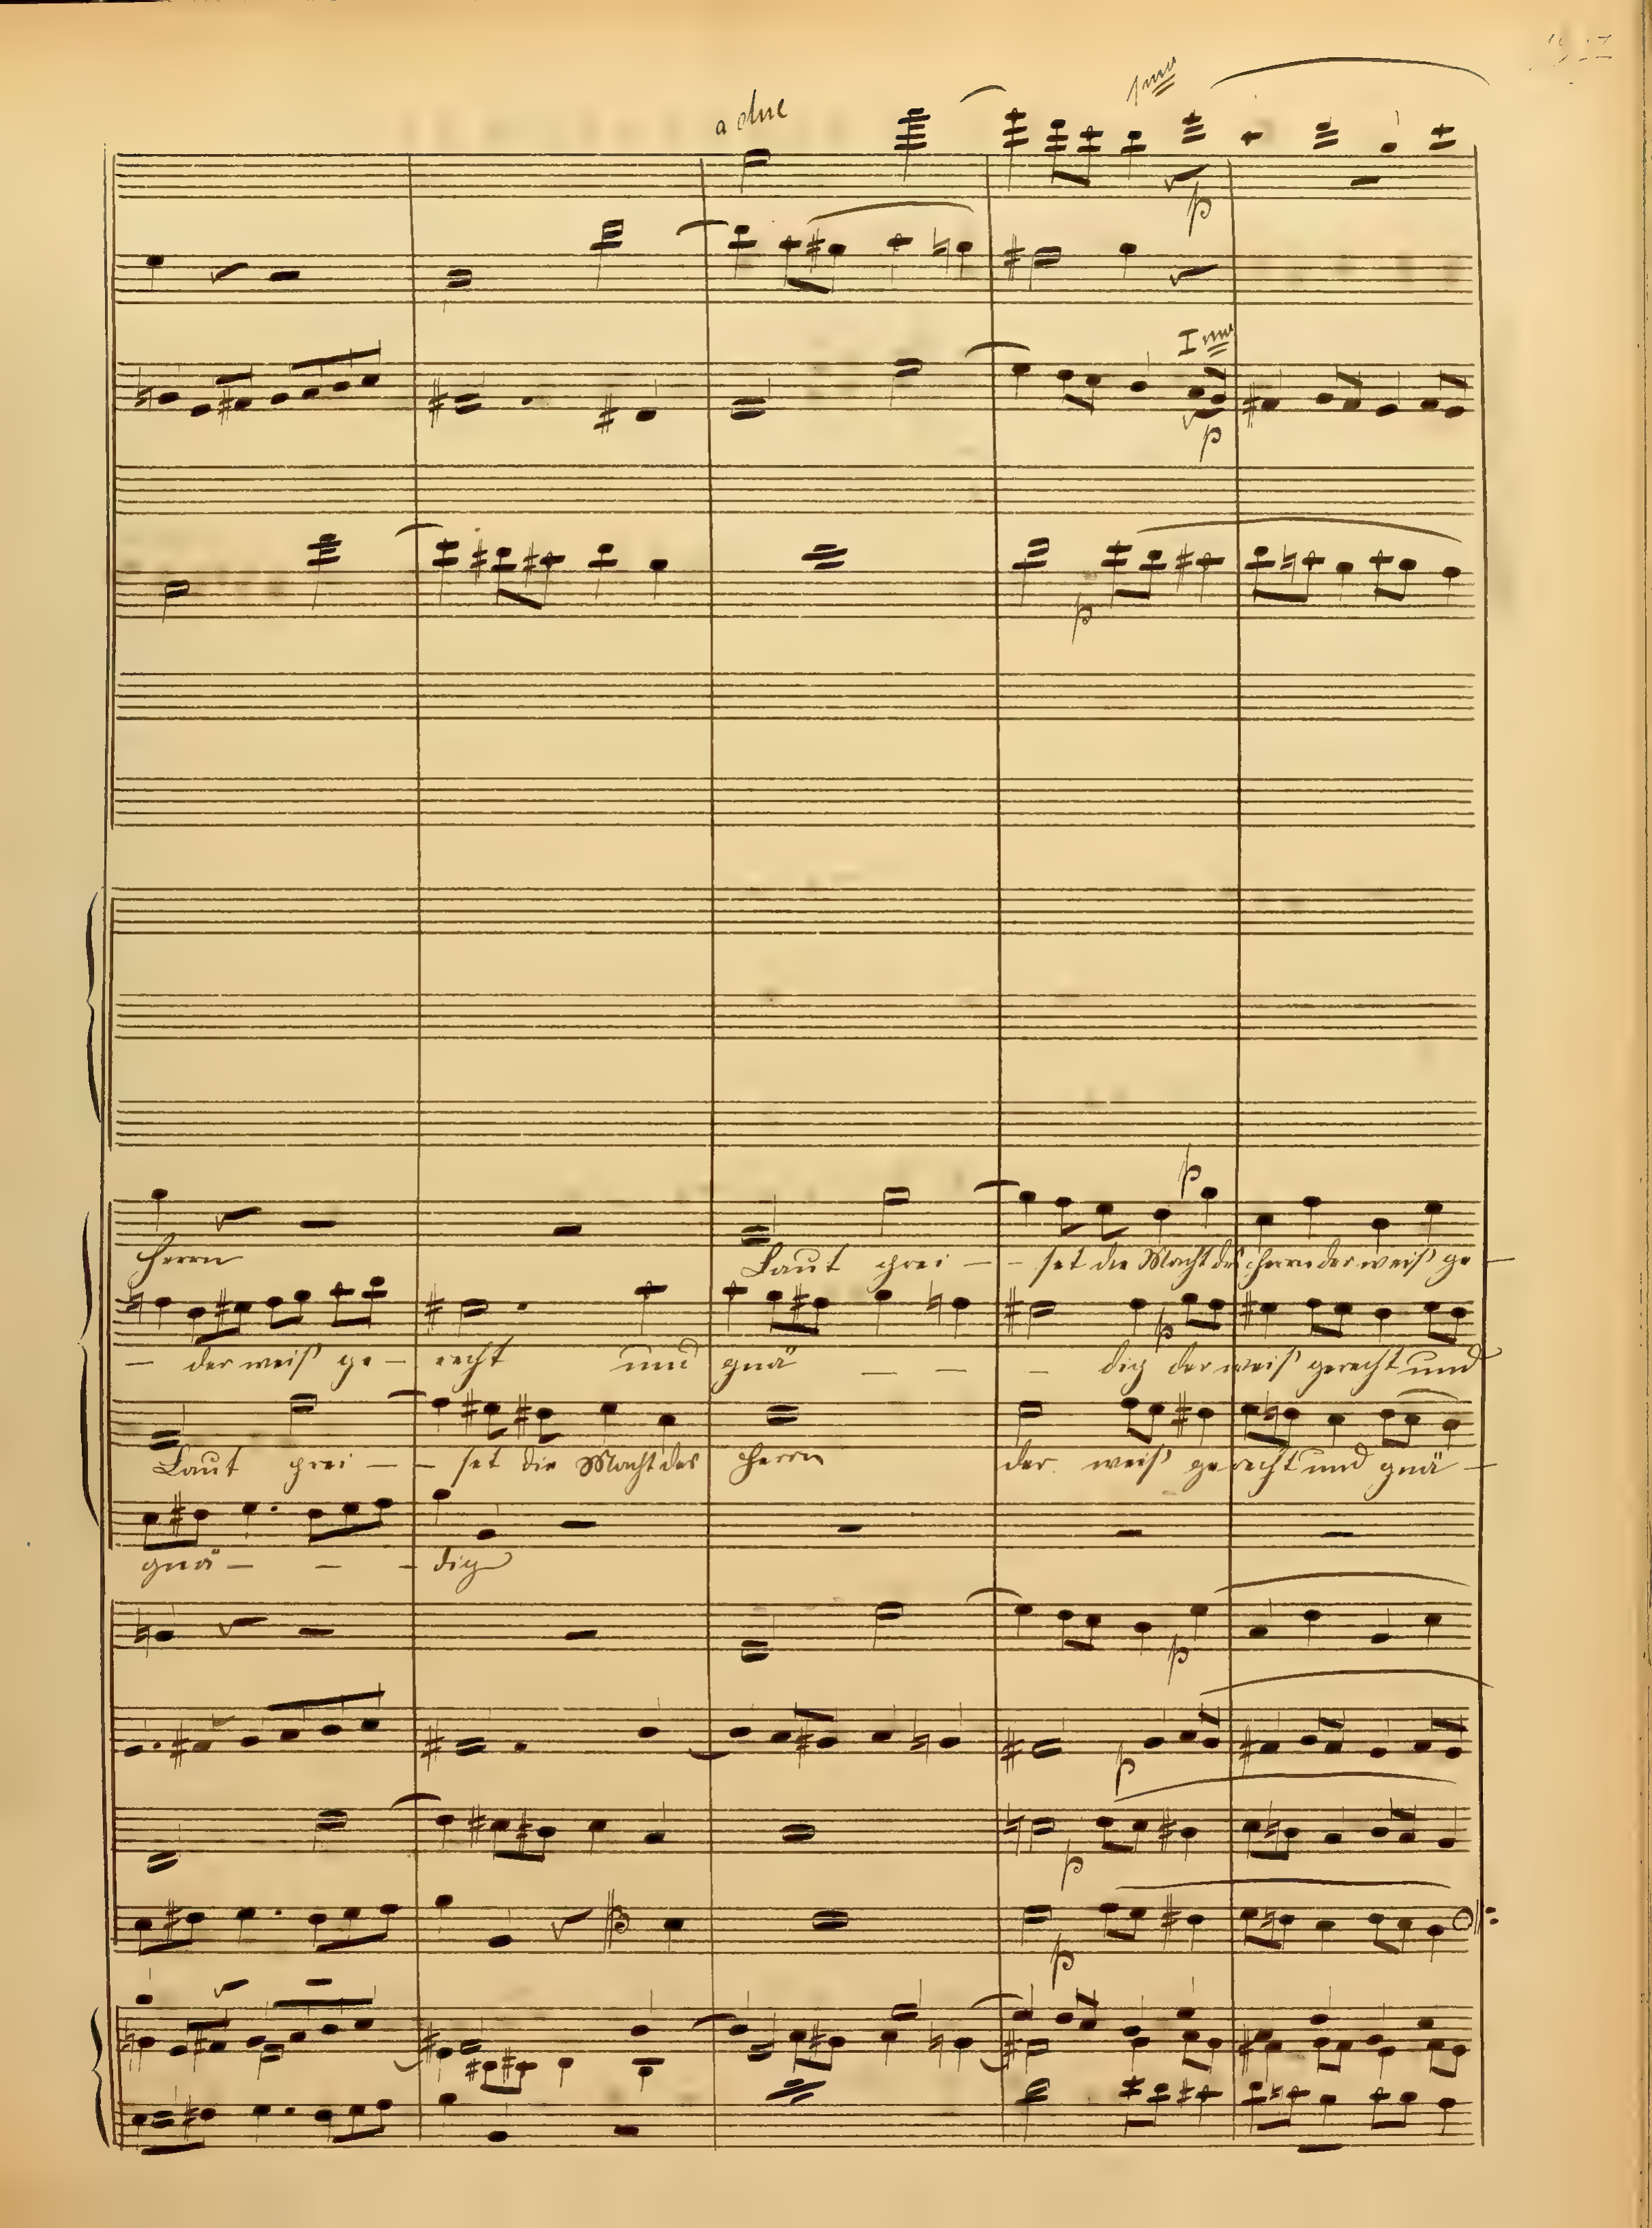 a due
1mo
p
Imo
p
p
p
Herrn Laut prei - - set die Macht des Herrn der weiß ge -
p
- der weiß ge - recht und gnä - - - dig der weiß gerecht und
Laut prei - - set die Macht des Herrn der weiß gerecht und gnä -
gnä - - - dig
p
p
p
p